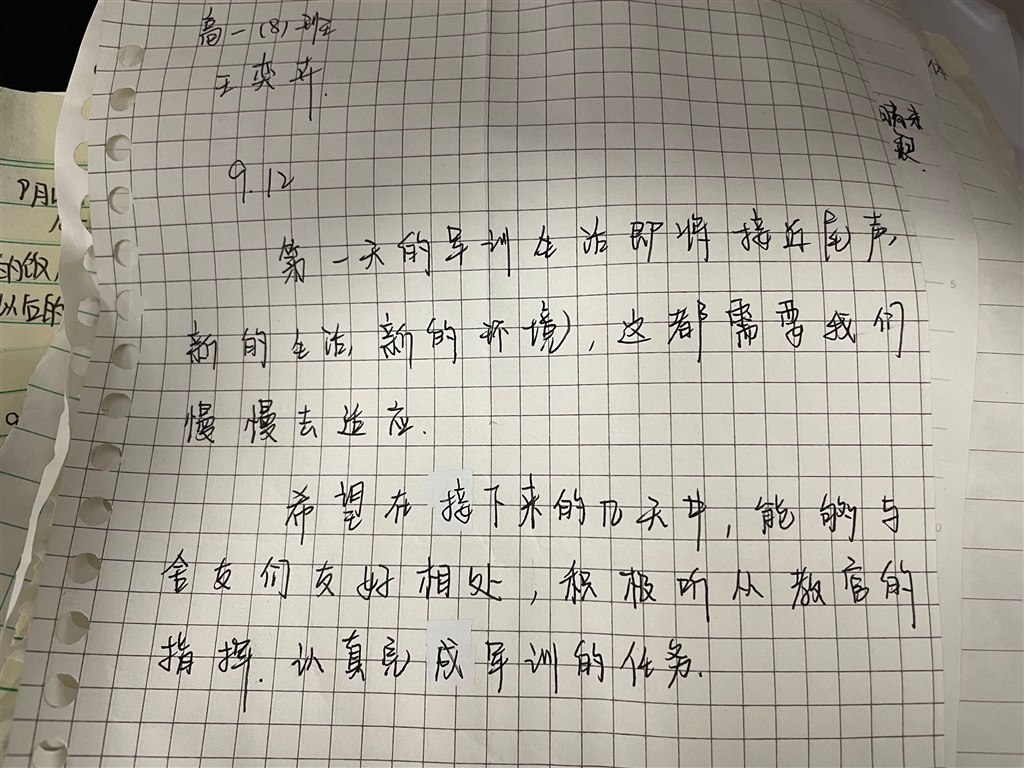 高一(8)班
王奕卉.
9.12
第一天的军训生活即将接近尾声,
新的生活,新的环境,这都需要我们
慢慢去适应.
希望在接下来的几天中,能够与
舍友们友好相处,积极听从教官的
指挥.认真完成军训的任务.
的饭,
以后的